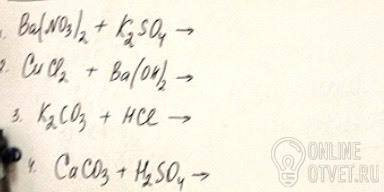 1. Ba(NO3)2 + K2SO4 →
2. CuCl2 + Ba(OH)2 →
3. K2CO3 + HCl →
4. CaCO3 + H2SO4 →
ONLINE
OTVET.RU